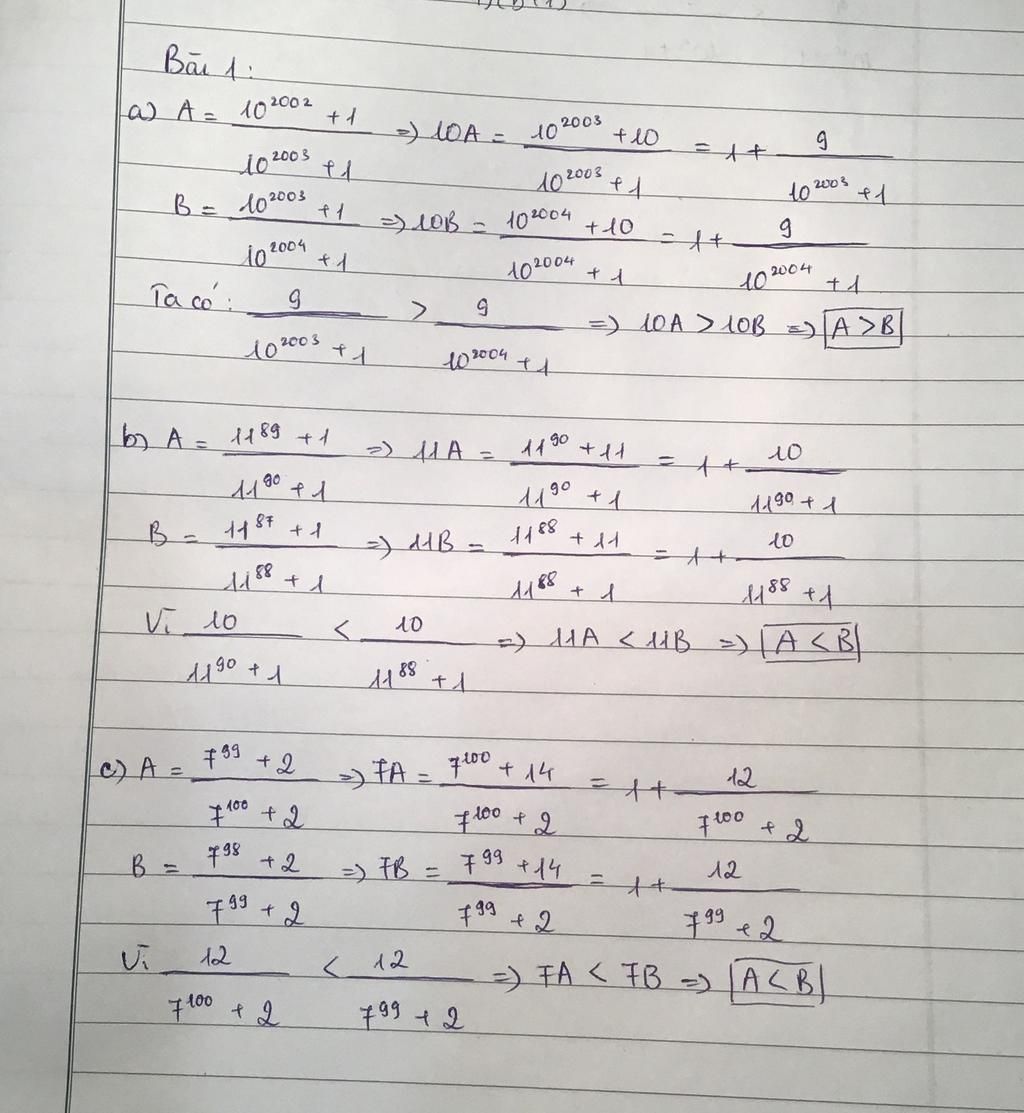 Bài 1:
a) A = (10²⁰⁰² + 1)/(10²⁰⁰³ + 1) => 10A = (10²⁰⁰³ + 10)/(10²⁰⁰³ + 1) = 1 + 9/(10²⁰⁰³ + 1)
B = (10²⁰⁰³ + 1)/(10²⁰⁰⁴ + 1) => 10B = (10²⁰⁰⁴ + 10)/(10²⁰⁰⁴ + 1) = 1 + 9/(10²⁰⁰⁴ + 1)
Ta có: 9/(10²⁰⁰³ + 1) > 9/(10²⁰⁰⁴ + 1) => 10A > 10B => A > B
b) A = (11⁸⁹ + 1)/(11⁹⁰ + 1) => 11A = (11⁹⁰ + 11)/(11⁹⁰ + 1) = 1 + 10/(11⁹⁰ + 1)
B = (11⁸⁷ + 1)/(11⁸⁸ + 1) => 11B = (11⁸⁸ + 11)/(11⁸⁸ + 1) = 1 + 10/(11⁸⁸ + 1)
Vì 10/(11⁹⁰ + 1) < 10/(11⁸⁸ + 1) => 11A < 11B => A < B
c) A = (7⁹⁹ + 2)/(7¹⁰⁰ + 2) => 7A = (7¹⁰⁰ + 14)/(7¹⁰⁰ + 2) = 1 + 12/(7¹⁰⁰ + 2)
B = (7⁹⁸ + 2)/(7⁹⁹ + 2) => 7B = (7⁹⁹ + 14)/(7⁹⁹ + 2) = 1 + 12/(7⁹⁹ + 2)
Vì 12/(7¹⁰⁰ + 2) < 12/(7⁹⁹ + 2) => 7A < 7B => A < B